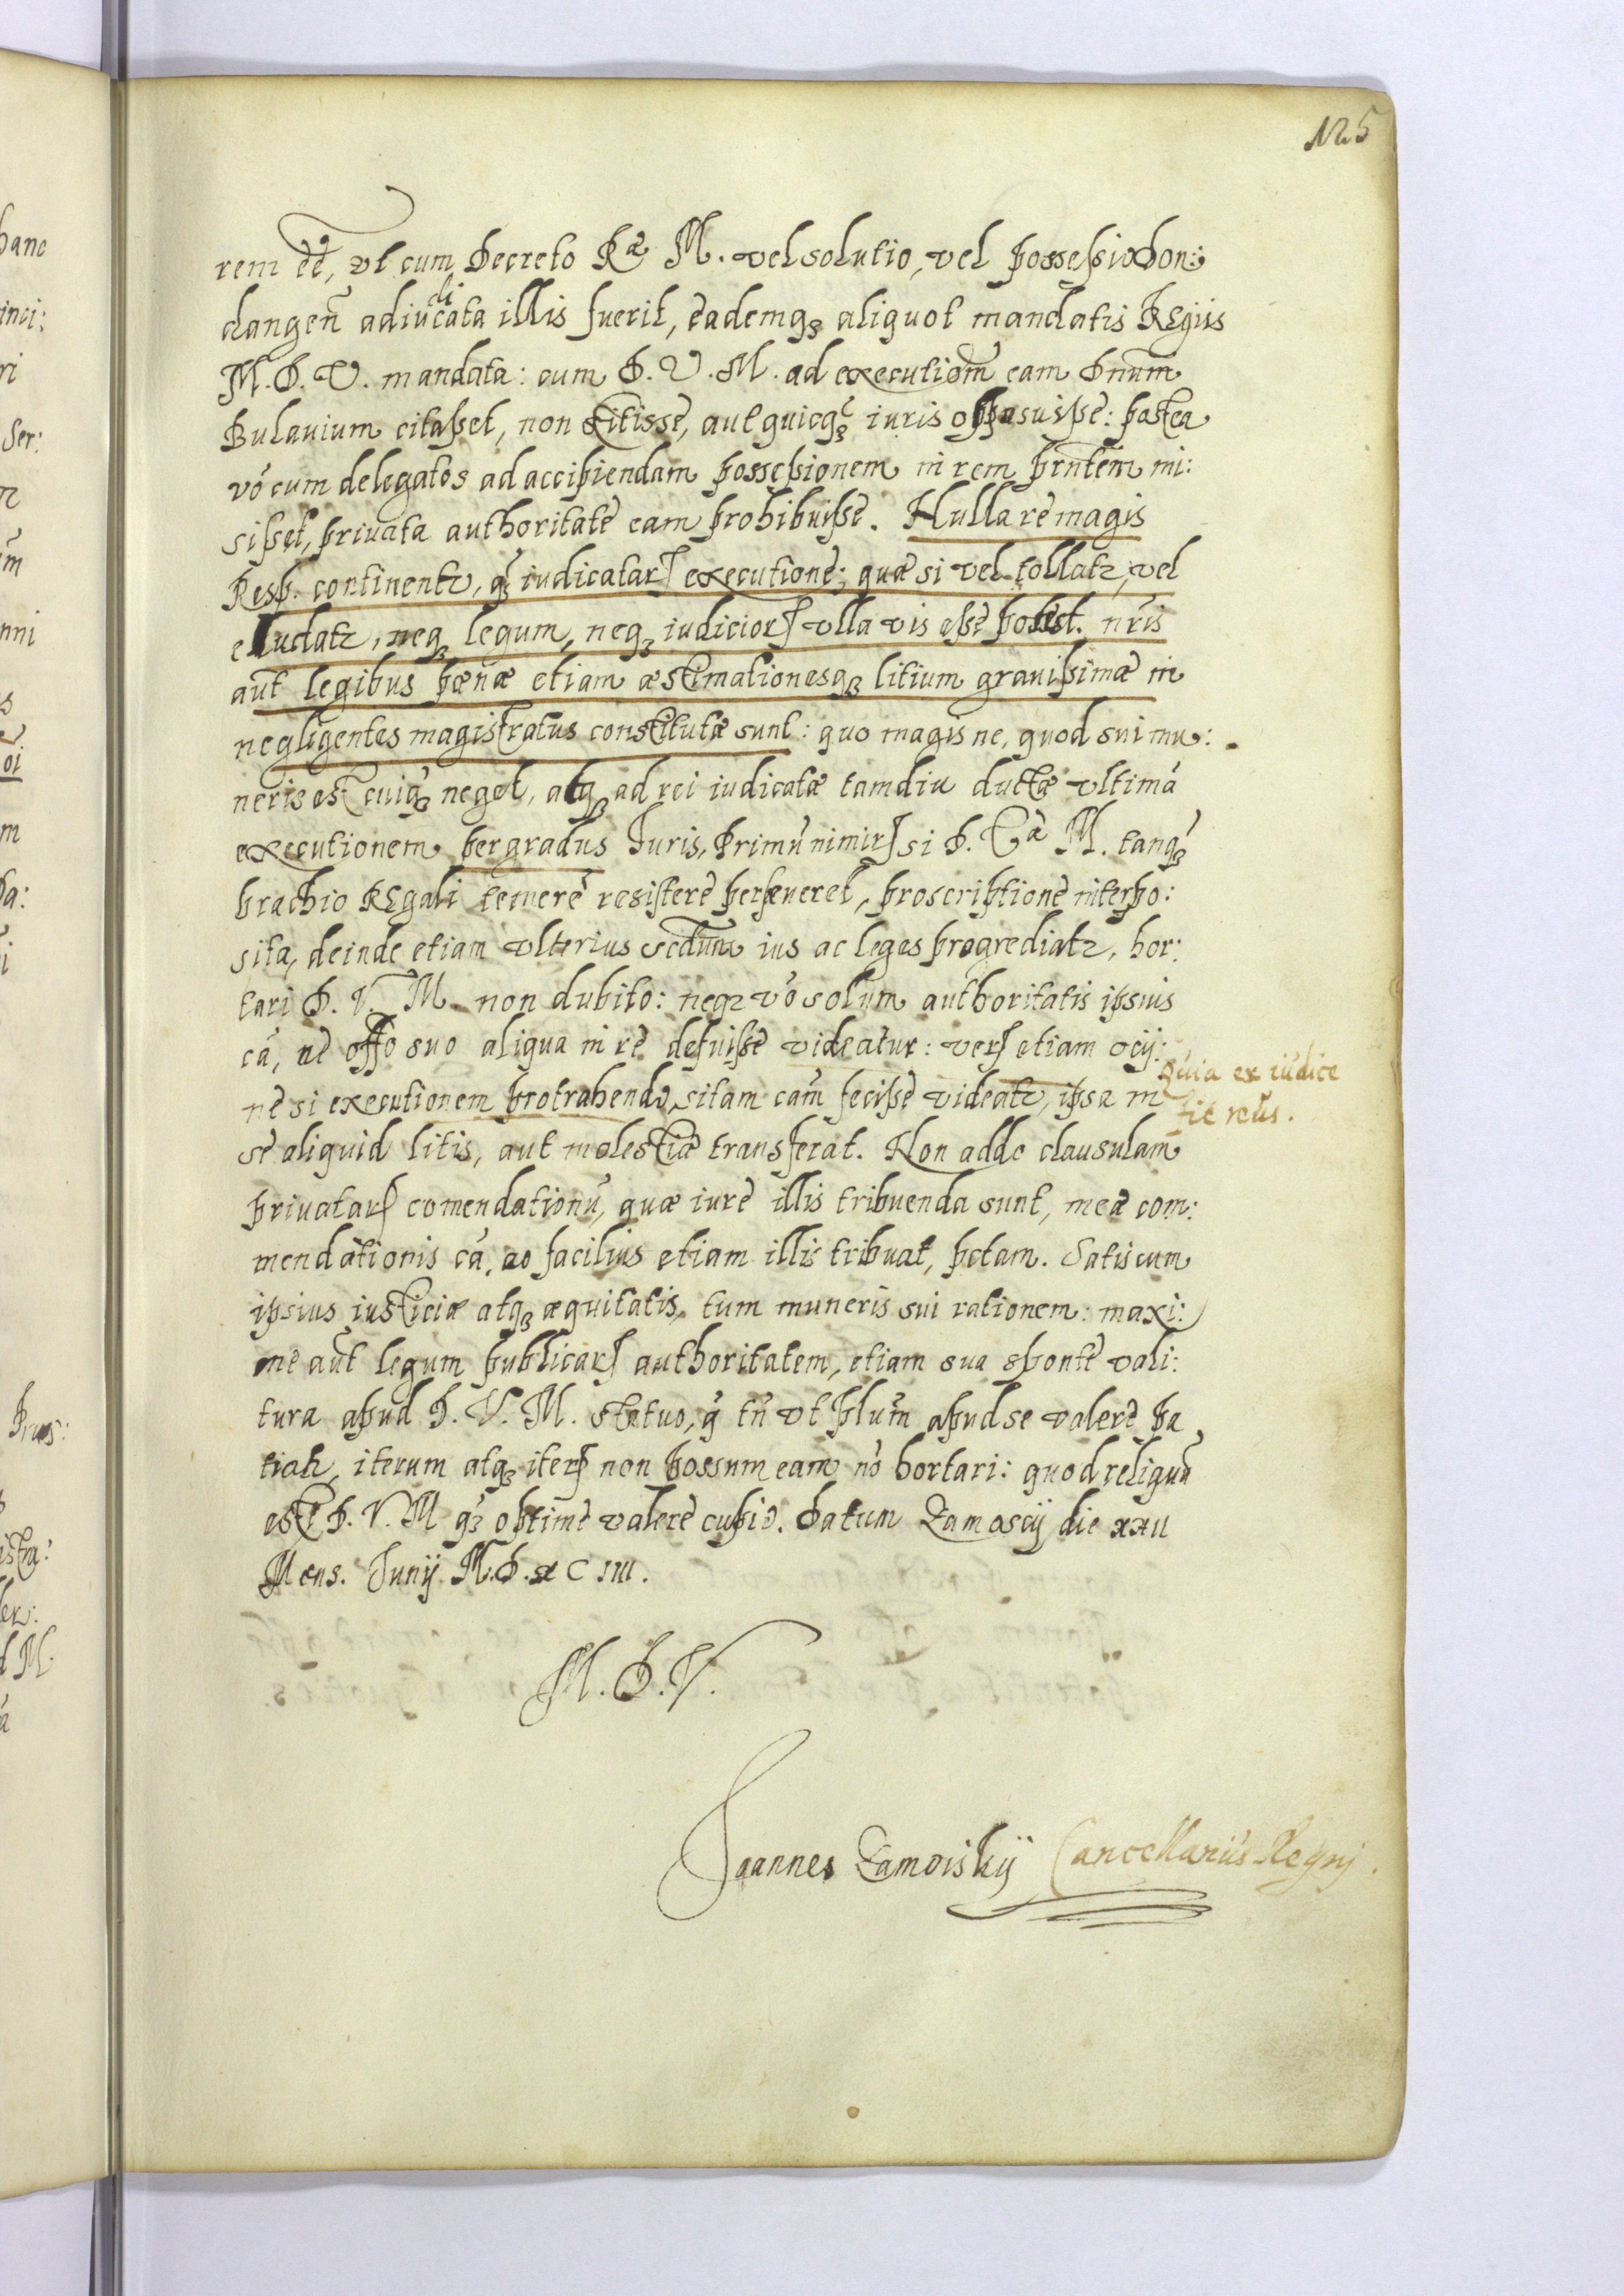 125
rem eẽ, vt cum Decreto Rᵃ M. vel solutio, vel possessio Bon:
dangeñ adiudicata illis fuerit, eademqȝ aliquot mandatis Regiis
M. D. V. mandata: cum D. V. M. ad executiom̃ eam Dnum̃
Bulauium citasset, non stitisse, aut quicqȝ iuris opposuisse: postea
vó cum delegatos ad accipiendam possessionem in rem prntem̃ mi:
sisset, priuata authoritate eam prohibuisse. Nulla re magis
Resp. continentr, qȝ iudicatarꝝ executione; quæ si vel tollatr, vel
eludatr, neqȝ legum, neqȝ iudiciorꝝ vlla vis esse potest. nr̃is
aut̃ legibus pœnæ etiam æstimationesqȝ litium grauissimæ in
negligentes magistratus constitutæ sunt: quo magis ne, quod sui mu:
neris est cuiqȝ neget, atqȝ ad rei iudicatæ tamdiu ductæ vltimá
executionem per gradus Iuris, Primũ nimirꝝ si D. Vᵃ M. tanqȝ
brachio Regali temere resistere perseueret, proscriptione interpo:
sita, deinde etiam vlterius secdum̃ ius ac leges progrediatr, hor:
tari D. V. M. non dubito: neqȝ vó solum authoritatis ipsius
cá, ne offo suo aliqua in re defuisse videatur: verꝝ etiam ocij:
ne si executionem protrahendo, sitam cam̃ fecisse videatr, ipsa in
quia ex iudice
fit reus.
se aliquid litis, aut molestiæ transferat. Non addo clausulam
priuatarꝝ comendationũ, quæ iure illis tribuenda sunt, meæ com:
mendationis cá, eo facilius etiam illis tribuat, petam. Satis cum
ipsius iusticiæ atqȝ æquitatis, tum muneris sui rationem: maxi:
me aut̃ legum publicarꝝ authoritatem, etiam sua sponte vali:
tura apud D. V. M. statuo, q̃ tñ vt plum̃ apud se valere pa
tiatr, iterum atqȝ iterꝝ non possum eam nó hortari: quod reliquũ
est D. V. M qȝ optime valere cupio. Datum Zamoscij die xxii
Mens. Iunij M.D.xCiiii.
M. D. V.
Joannes Zamoiskij Cancellarius Regnj.